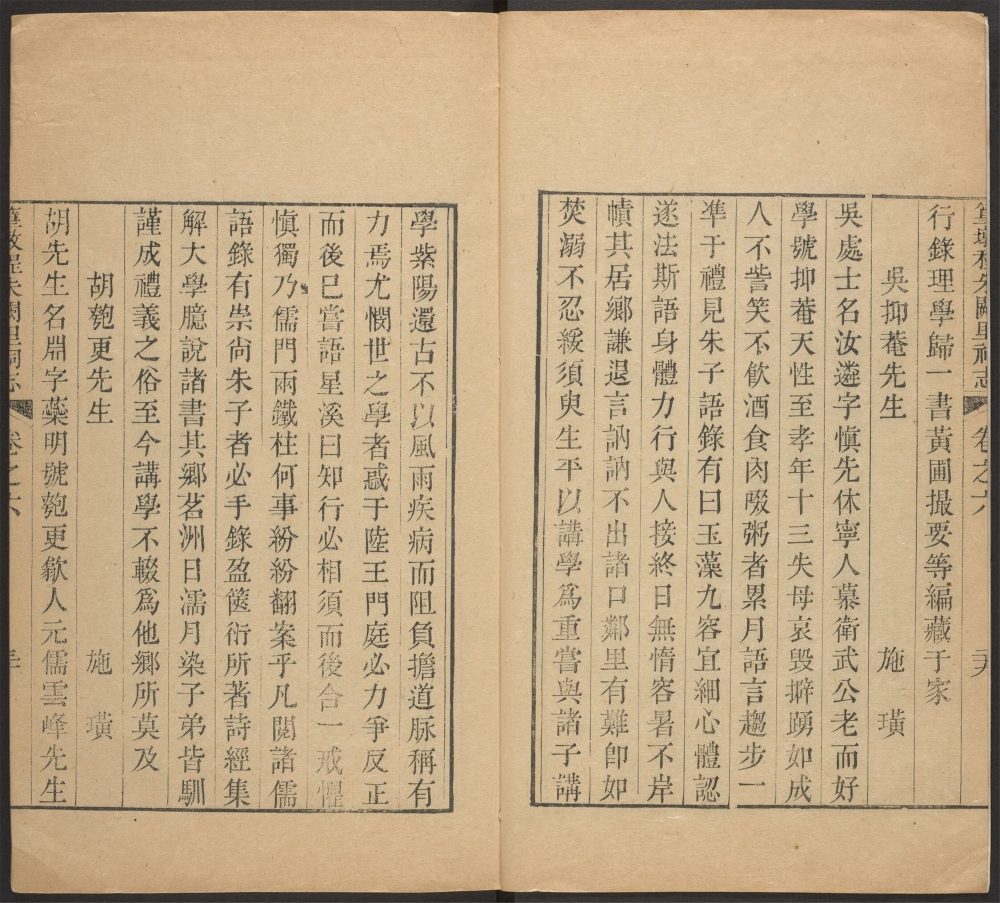 篁墩程朱闕里祠志
卷之六
行錄理學歸一書黃圃撮要等編藏于家
吳抑菴先生
施璜
吳處士名汝遴字愼先休寧人慕衛武公老而好
學號抑菴天性至孝年十三失母哀毀擗踴如成
人不訾笑不飮酒食肉啜粥者累月語言趨步一
凖于禮見朱子語錄有曰玉藻九容宜細心體認
遂法斯語身體力行與人接終日無惰容暑不岸
幘其居鄉謙退言訥訥不出諸口鄰里有難卽如
焚溺不忍緩須臾生平以講學爲重嘗與諸子講
學紫陽還古不以風雨疾病而阻負擔道脉稱有
力焉尤憫世之學者惑于陸王門庭必力爭反正
而後已嘗語星溪曰知行必相須而後合一戒懼
愼獨乃儒門兩鐵柱何事紛紛翻案乎凡閱諸儒
語錄有崇尙朱子者必手錄盈篋衍所著詩經集
解大學臆說諸書其鄉茗洲日濡月染子弟皆馴
謹成禮義之俗至今講學不輟爲他鄉所莫及
胡匏更先生
施璜
胡先生名淵字蘂明號匏更歙人元儒雲峰先生
篁墩程朱闕里祠志
卷之六